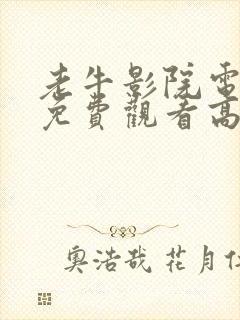 老牛影院電
免費觀看高
奧浩哉 花月仕